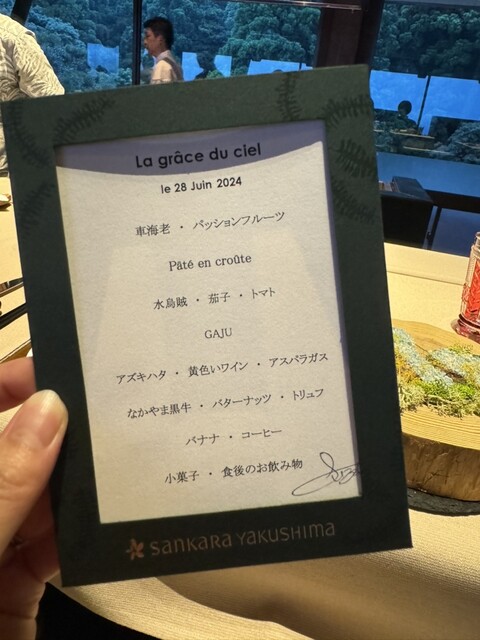 La grâce du ciel
le 28 Juin 2024
車海老 ・ パッションフルーツ
Pâté en croûte
水烏賊 ・ 茄子 ・ トマト
GAJU
アズキハタ ・ 黄色いワイン ・ アスパラガス
なかやま黒牛 ・ バターナッツ ・ トリュフ
バナナ ・ コーヒー
小菓子 ・ 食後のお飲み物
SANKARA YAKUSHIMA